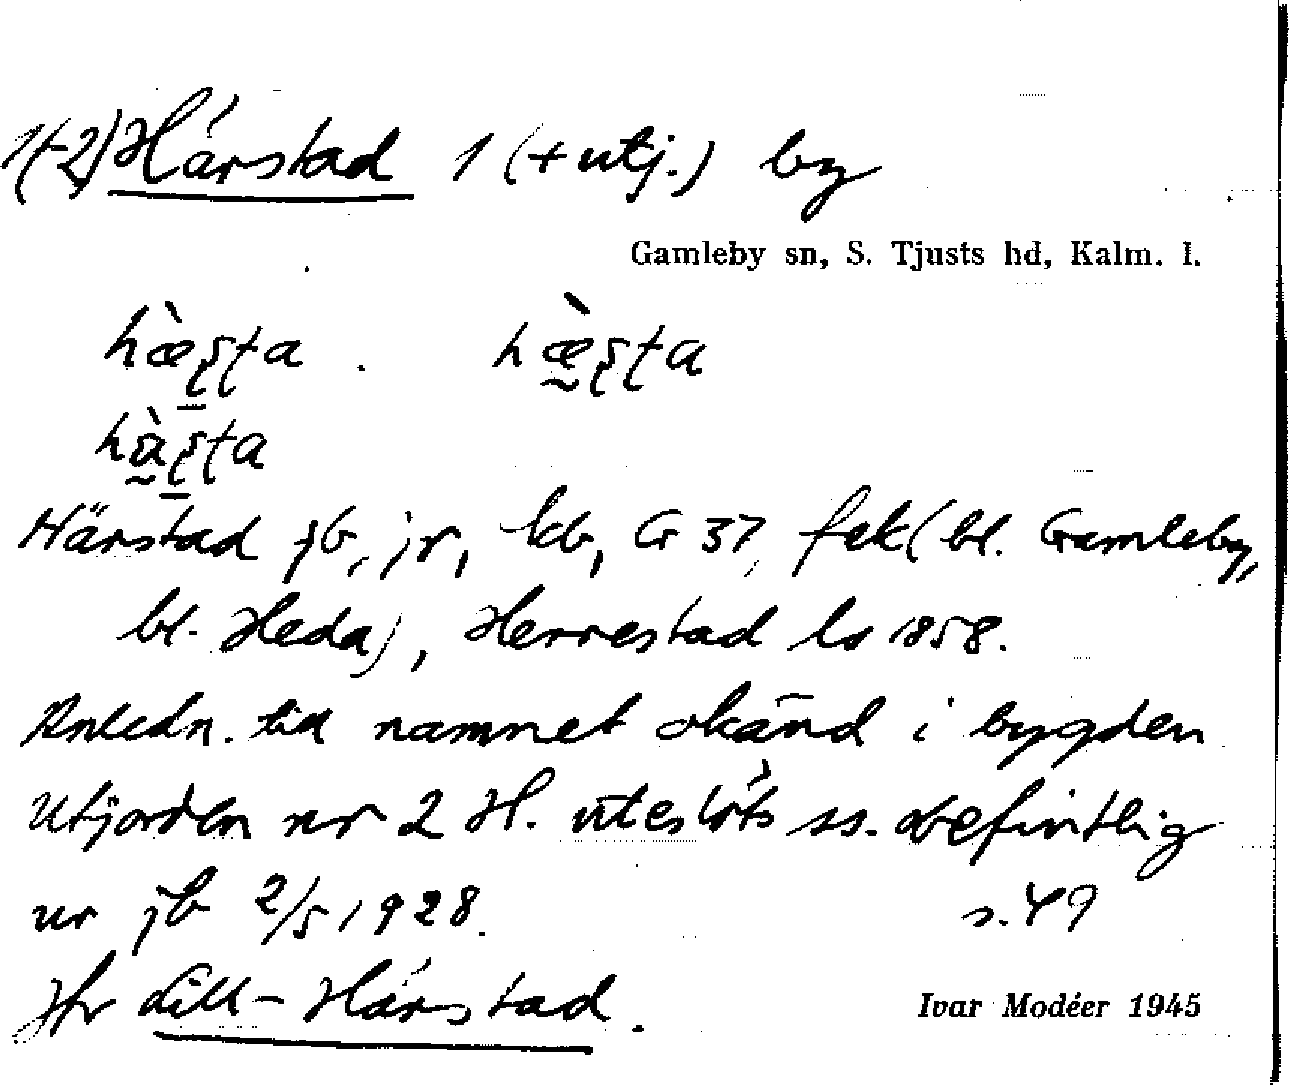 1(-2) Härstad 1 (+ utj.) by
Gamleby sn, S. Tjusts hd, Kalm. l.
hæ̀ʂʈa . hæ̰̀ʂʈa
hà̰ʂʈa
Härstad jb, jr, kb, G 37, fek (bl. Gamleby,
bl. Heda), Herrestad ls 1858.
Anledn. till namnet okänd i bygden
Utjorden nr 2 H. uteslöts ss. obefintlig
ur jb 2/5 1928. s. 49
Jfr Lill-Härstad.
Ivar Modéer 1945